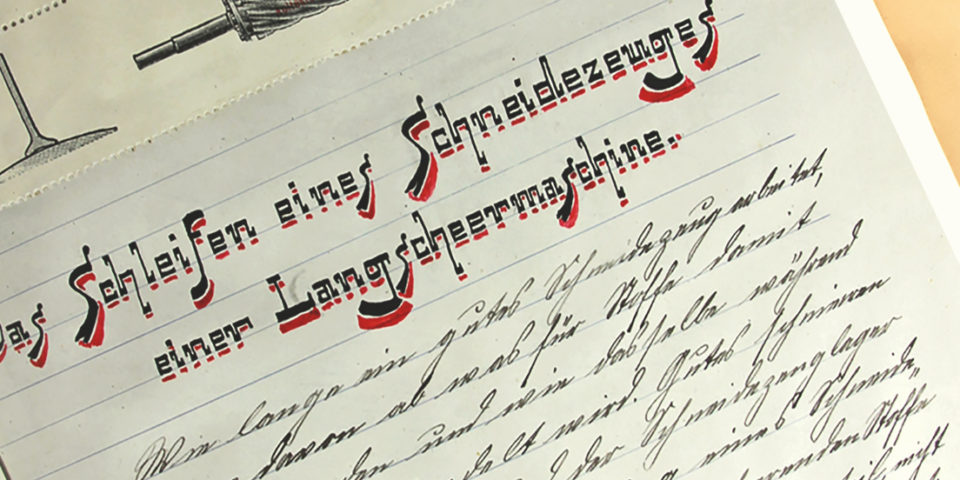 Das Schleifen eines Schneidezeuges
einer Langscheermaschine.
Wie lange ein gutes Schneidezeug arbeitet,
davon ab was für Stoffe damit
den und wie dasselbe während
delt wird. Gutes schmieren
der Schneidezeuglager
eines Schneide„
den Stoffe
nicht